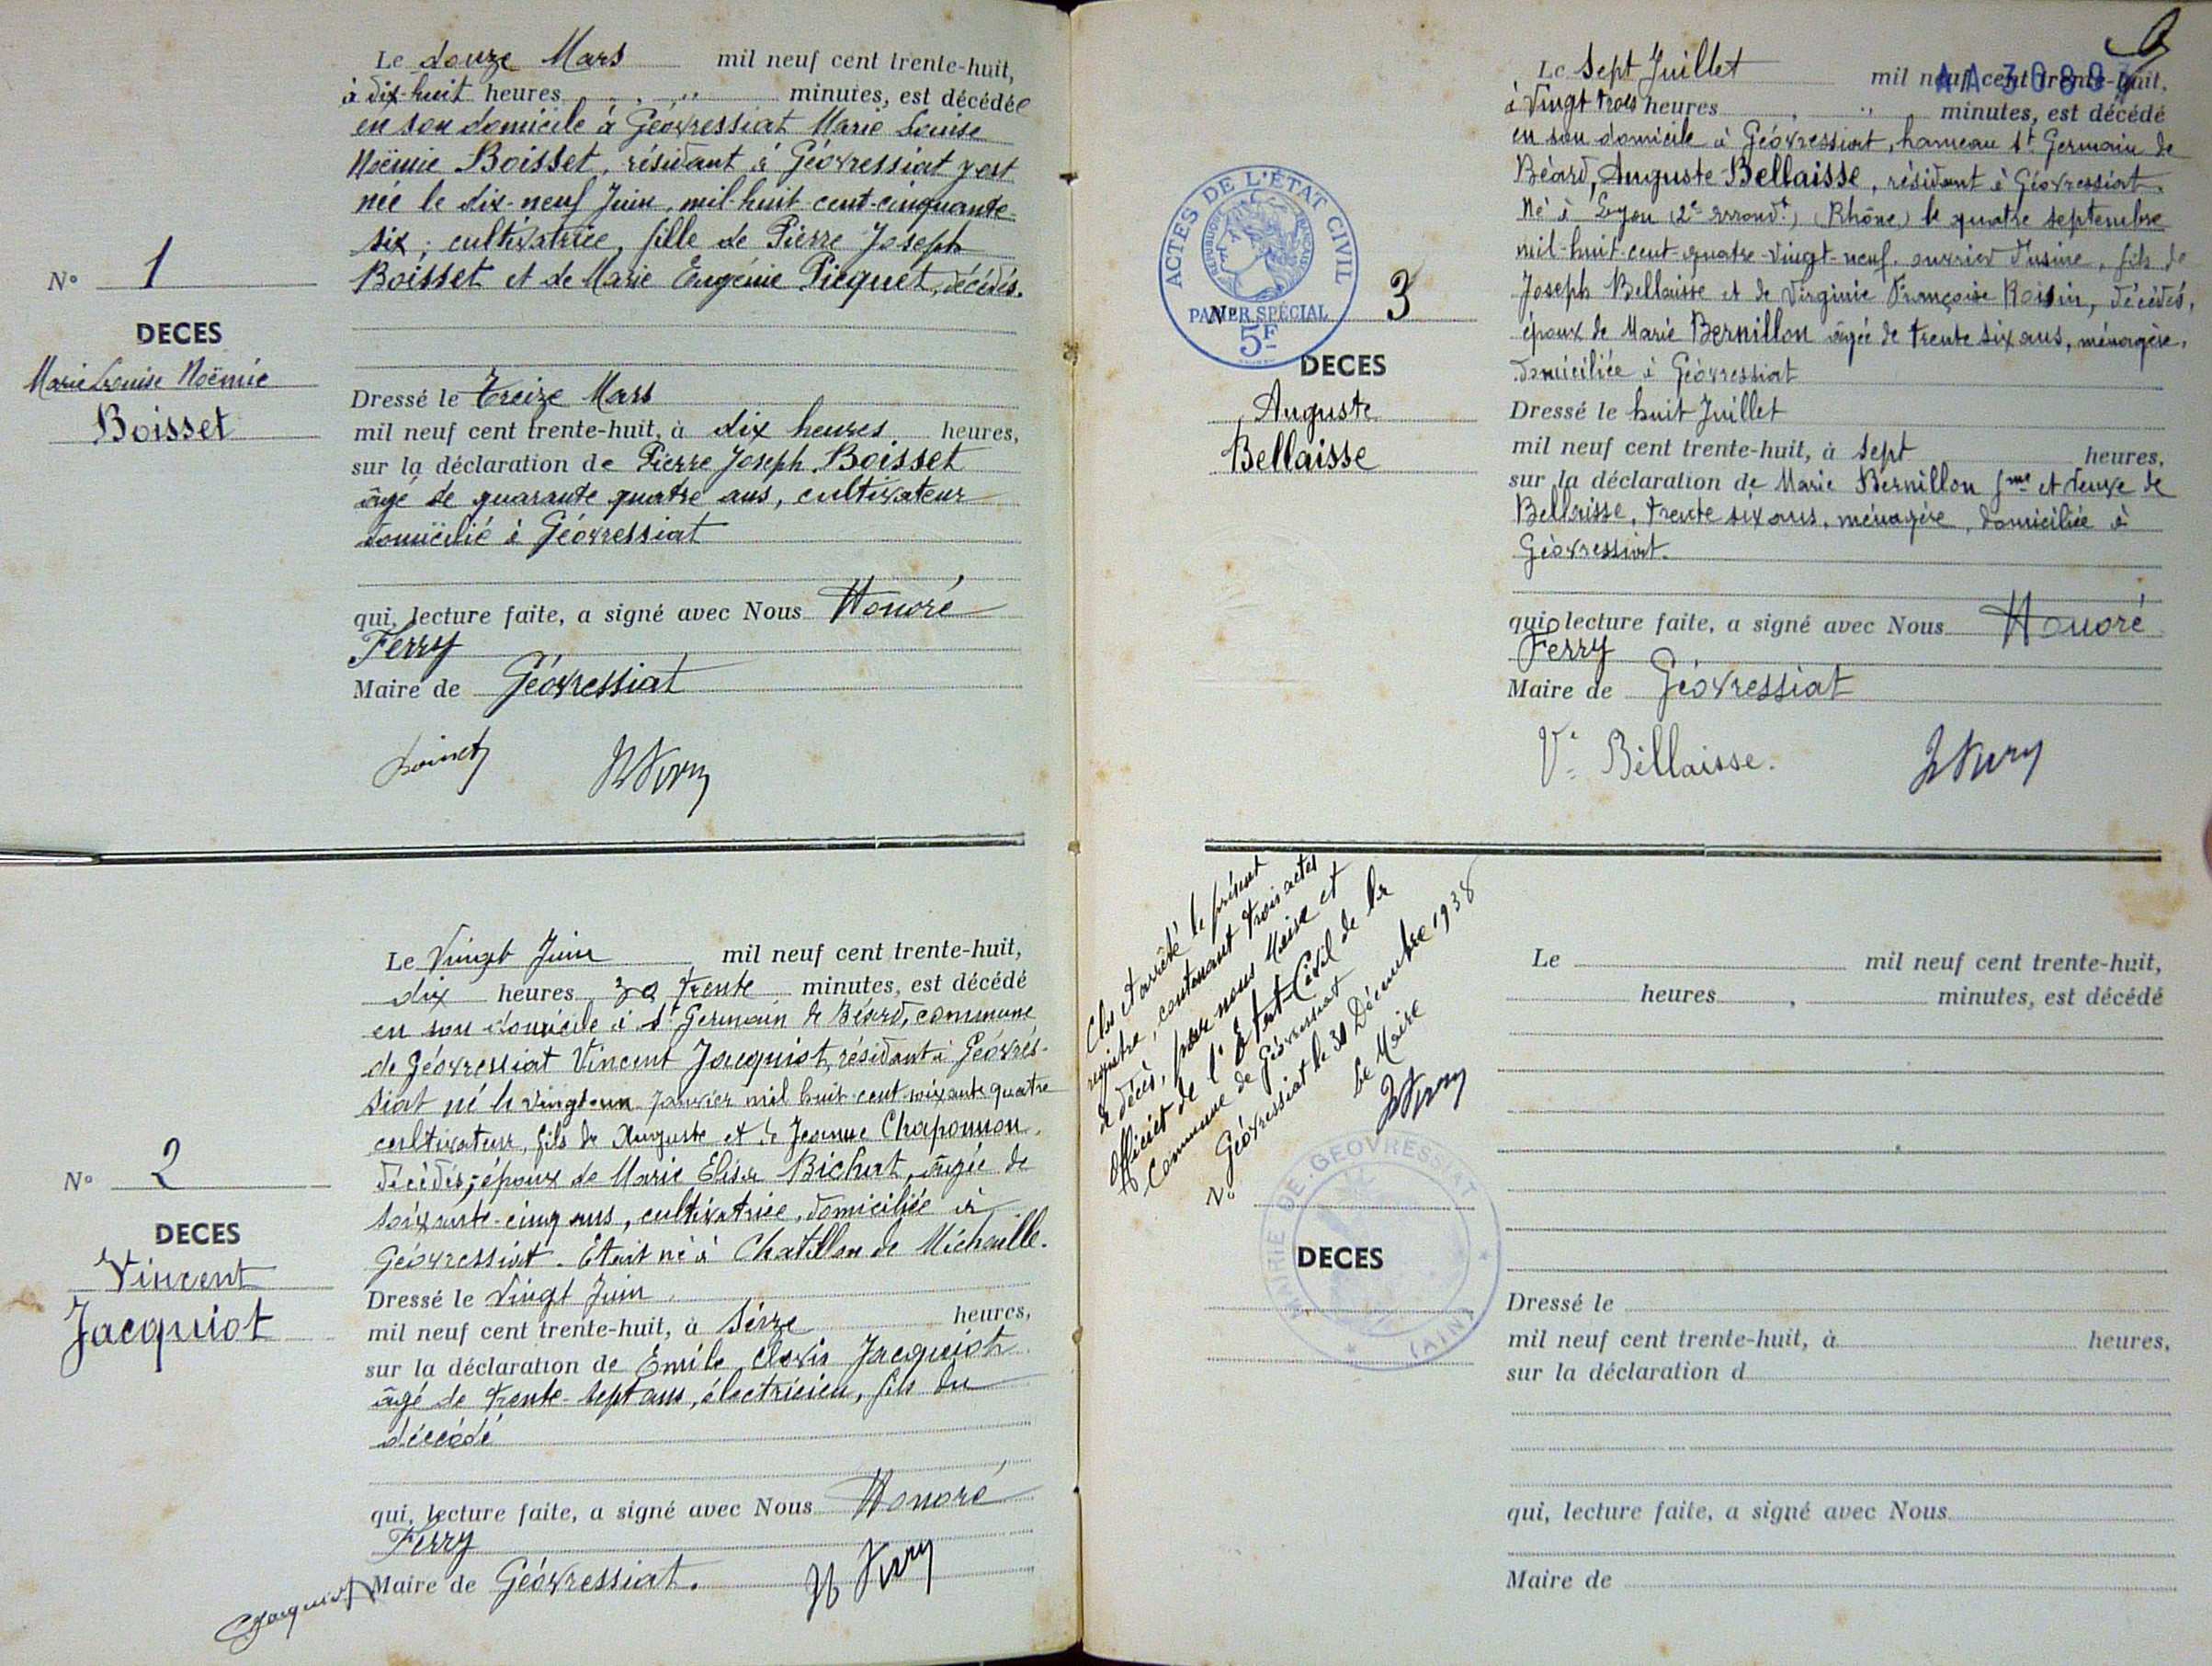 Le douze Mars mil neuf cent trente-huit,
à dix-huit heures , " minutes, est décédée
en son domicile à Géovressiat Marie Louise
Noëmie Boisset, résidant à Géovressiat y est
née le dix-neuf Juin, mil-huit-cent-cinquante-
six; cultivatrice, fille de Pierre Joseph
Boisset et de Marie Eugénie Picquet, décédés.
N° 1
DECES
Marie Louise Noëmie
Boisset
Dressé le treize Mars
mil neuf cent trente-huit, à dix heures heures,
sur la déclaration de Pierre Joseph Boisset
âgé de quarante quatre ans, cultivateur
domicilié à Géovressiat
qui, lecture faite, a signé avec Nous Honoré
Ferry
Maire de Géovressiat
Boisset HFerry
Le Vingt Juin mil neuf cent trente-huit,
dix heures 30 trente minutes, est décédé
en son domicile à St Germain de Béard, commune
de Géovressiat Vincent Jacquiot, résidant à Géovres-
siat né le vingt-un Janvier mil huit cent soixante quatre
cultivateur, fils de Auguste et de Jeanne Chaponnon,
décédés; époux de Marie Elisa Bichat, âgée de
soixante-cinq ans, cultivatrice, domiciliée à
Géovressiat. Etait né à Chatillon de Michaille.
N° 2
DECES
Vincent
Jacquiot
Dressé le Vingt Juin
mil neuf cent trente-huit, à seize heures,
sur la déclaration de Emile Clovis Jacquiot
âgé de trente-sept ans, électricien, fils du
décédé
qui, lecture faite, a signé avec Nous Honoré
Ferry
Maire de Géovressiat. H Ferry
CJacquiot
AA308
Le Sept Juillet mil neuf cent trente-huit,
à Vingt trois heures , " minutes, est décédé
en son domicile à Géovressiat, hameau St Germain de
Béard, Auguste Bellaisse, résidant à Géovressiat.
Né à Lyon (2e arrondt.) (Rhône) le quatre septembre
mil-huit-cent-quatre-vingt-neuf. ouvrier d'usine, fils de
Joseph Bellaisse et de Virginie Françoise Roisin, décédés,
époux de Marie Bernillon âgée de trente six ans, ménagère,
domiciliée à Géovressiat
ACTES DE L'ÉTAT CIVIL
RÉPUBLIQUE FRANÇAISE
PAPIER SPÉCIAL
5F
N° 3
DECES
Auguste
Bellaisse
Dressé le huit Juillet
mil neuf cent trente-huit, à sept heures,
sur la déclaration de Marie Bernillon fme et veuve de
Bellaisse, trente six ans, ménagère, domiciliée à
Géovressiat.
qui, lecture faite, a signé avec Nous Honoré
Ferry
Maire de Géovressiat
Ve Bellaisse. HFerry
Clos et arrêté le présent
registre, contenant trois actes
de décès, par nous Maire et
Officier de l'Etat-Civil de la
Commune de Géovressiat
Géovressiat le 31 Décembre 1938
Le Maire
HFerry
MAIRIE DE GEOVRESSIAT
(AIN)
N°
DECES
Le mil neuf cent trente-huit,
heures , minutes, est décédé
Dressé le
mil neuf cent trente-huit, à heures,
sur la déclaration d
qui, lecture faite, a signé avec Nous
Maire de